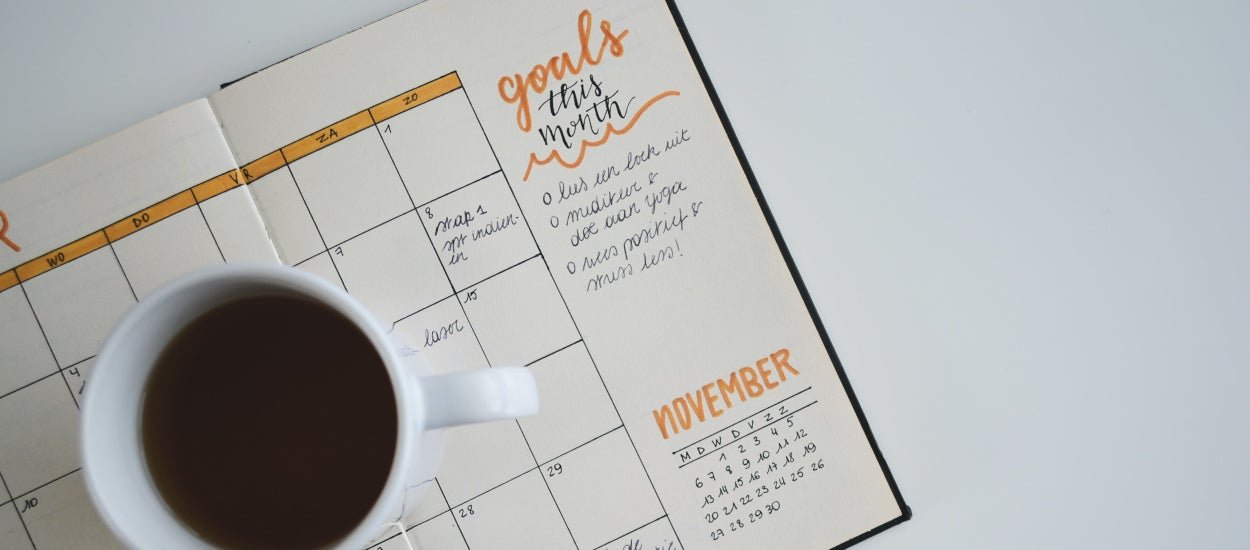 WO DO VR ZA ZO
1
4
7
8
stap 1
spr indien-
en
10
15
laser
28
29
goals
this
month
o lees een boek uit
o mediteer &
doe aan yoga
o wees positief &
stress less!
NOVEMBER
M D W D V Z Z
1 2 3 4 5
6 7 8 9 10 11 12
13 14 15 16 17 18 19
20 21 22 23 24 25 26
27 28 29 30